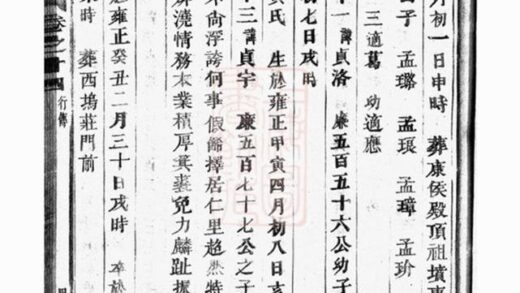 月初一日申時　葬康侯殿頂祖墳東
子　孟璐　孟琅　孟璋　孟玠
三適葛　幼適應
十一諱貞洛　廉五百五十六公幼子
初七日戌時
氏　生於雍正甲寅四月初八日亥
十三諱貞宇　廉五百七十七公之子
尚浮誇何事假飾擇居仁里超然特
澆情務本業積厚箕裘兒力麟趾振
雍正癸丑二月三十日戌時　卒於
時　葬西塢莊門前
卷之十四　行傳